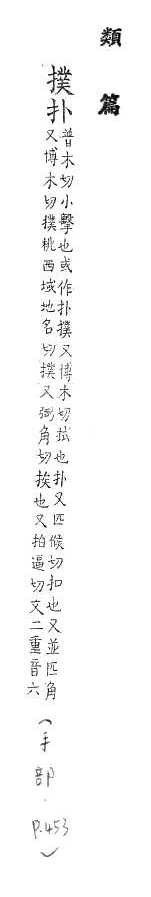 類篇
撲扑
普木切小擊也或作扑撲又博木切拭也扑又匹候切扣也又並匹角
又博木切撲桃西域地名切撲又弼角切挨也又拍逼切文二重音六
(手部.P.453)